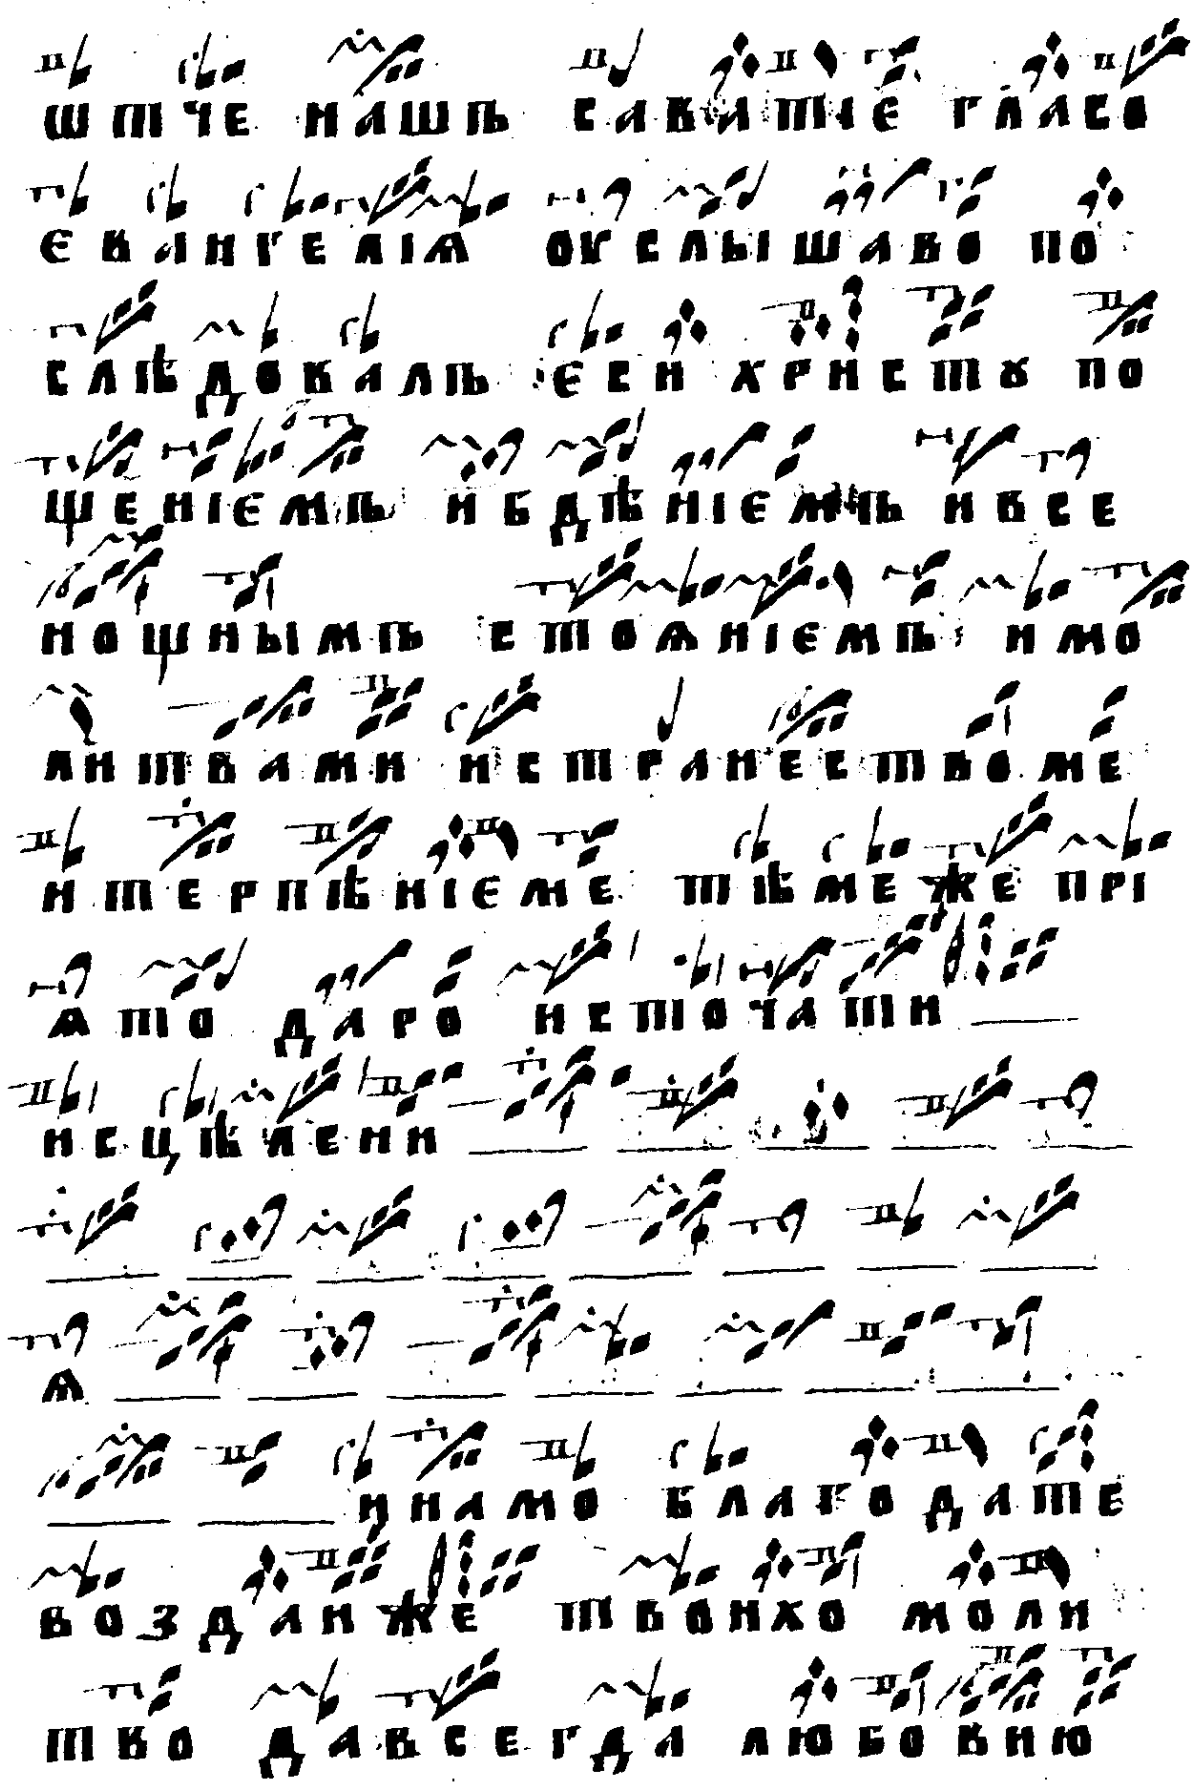 Ѡтче нашь саватїє гласо
єкангелїѧ оуслышаво по
слѣдовалъ єси христу по
щенїємъ и бдѣнїємъ и все
нощнымъ стоѧнїємъ и мо
литвами и странествоме
и терпѣнїєме тѣмеже прї
ѧто даро источати
исцѣлени
ѧ
и намо благодате
воздаиже твоихо моли
тво да всегда любовию